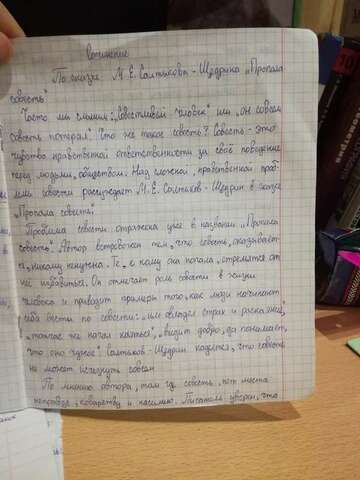 Сочинение
По сказке М. Е. Салтыкова-Щедрина „Пропала
совесть"
Часто мы слышим: „Совестливый человек" или „он совсем
совесть потерял". Что же такое совесть? Совесть - это
чувство нравственной ответственности за своё поведение
перед людьми, обществом. Над сложной, нравственной проб-
лемой совести рассуждает М. Е. Салтыков-Щедрин в сказке
„Пропала совесть".
Проблема совести отражена уже в названии „Пропала
совесть". Автор встревожен тем, что совесть, оказывает-
ся, никому ненужна. Те, к кому она попала, стремятся от
неё избавиться. Он отмечает роль совести в жизни
человека и приводит примеры того, как люди начинают
себя вести по совести: „им овладел страх и раскаянье",
каяться", „видит добро, да понимает,
что оно чужое". Салтыков-Щедрин надеется, что совесть
не может исчезнуть совсем
По мнению автора, там где совесть, нет места
неправде, коварству и насилию. Писатель уверен, что